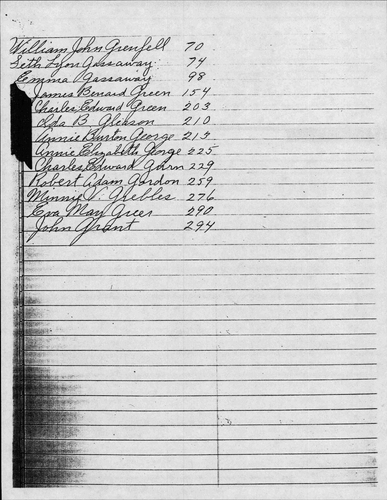 William John Grenfell 70
Seth Lyon Gassaway 74
Emma Gassaway 98
James Benard Green 154
Charles Edward Green 203
Olda B. Gleason 210
Annie Burton George 215
Annie Elizabeth George 225
Charles Edward 229
Robert Adam Gordon 259
Minnie Grebles 276
Eva May Greer 290
John Grant 294